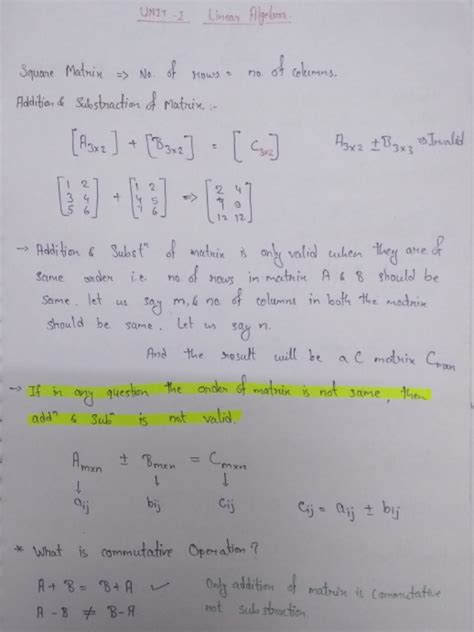 UNIT-I Linear Algebra.
Square Matrix => No. of rows = no. of columns.
Addition & Substraction of Matrix :-
[A3x2] + [B3x2] = [C3x2] A3x2 ± B3x3 => Invalid
[1 2 + [1 2 => [2 4
3 4 4 5 7 9
5 6] 7 6] 12 12]
→ Addition & Substn of matrix is only valid when they are of
same order i.e. no of rows in matrix A & B should be
same. let us say m, & no of columns in both the matrix
should be same. Let us say n.
And the result will be a C matrix Cmxn
→ If in any question the order of matrix is not same, then
addn & Subn is not valid.
Amxn ± Bmxn = Cmxn
↓ ↓ ↓
aij bij cij cij = aij ± bij
* What is commutative Operation?
A + B = B + A ✓ Only addition of matrix is commutative
A - B ≠ B - A not substraction.